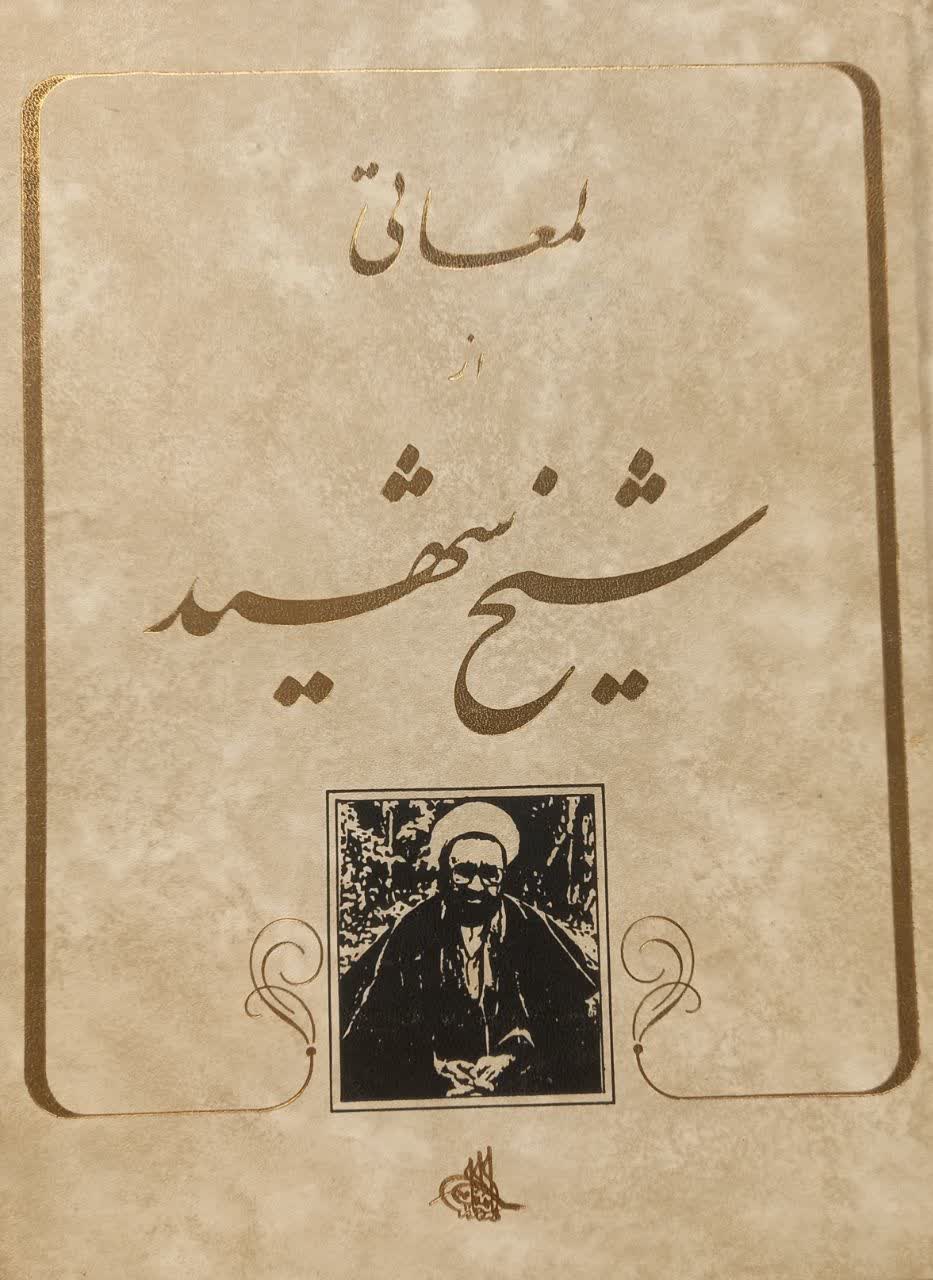 لمعاتی
از
شیخ شهید